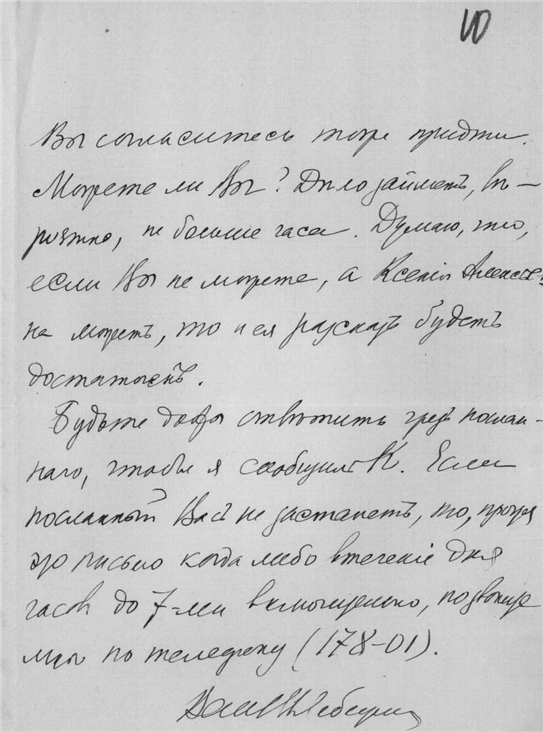 10
Вы согласитесь тоже придти.
Можете ли Вы? Дѣло займетъ, вѣ-
роятно, не больше часа. Думаю, что,
если Вы не можете, а Ксенія Алексѣев-
на можетъ, то и ея разсказъ будетъ
достаточенъ.
Будьте добры отвѣтить чрезъ послан-
наго, чтобы я сообщилъ К. Если
посланный Васъ не застанетъ, то, прочтя
это письмо когда либо втеченіе дня
часовъ до 7-ми включительно, позвоните
мнѣ по телефону (178-01).
Вашъ